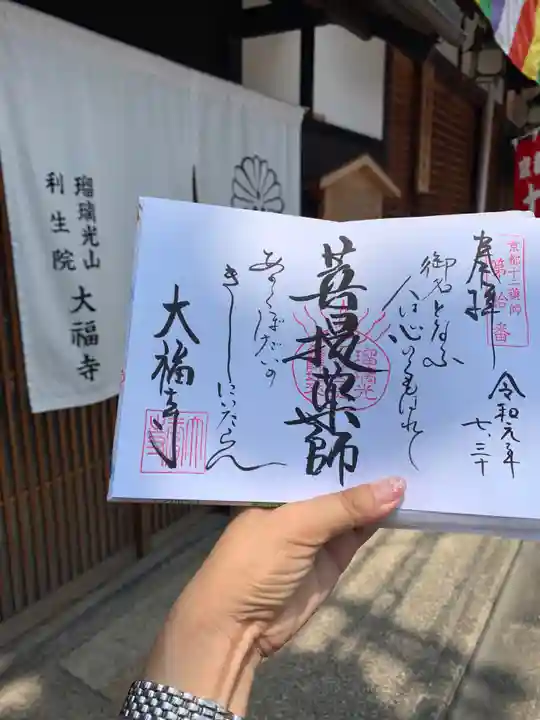 瑠璃光山
利生院 大福寺
奉拝
京都十二薬師
第拾番
令和元年
七・三十
御名となふ
人は心のくもはれて
菩提薬師
瑠璃光
あのくぼだいの
きしにいたらん
大福寺